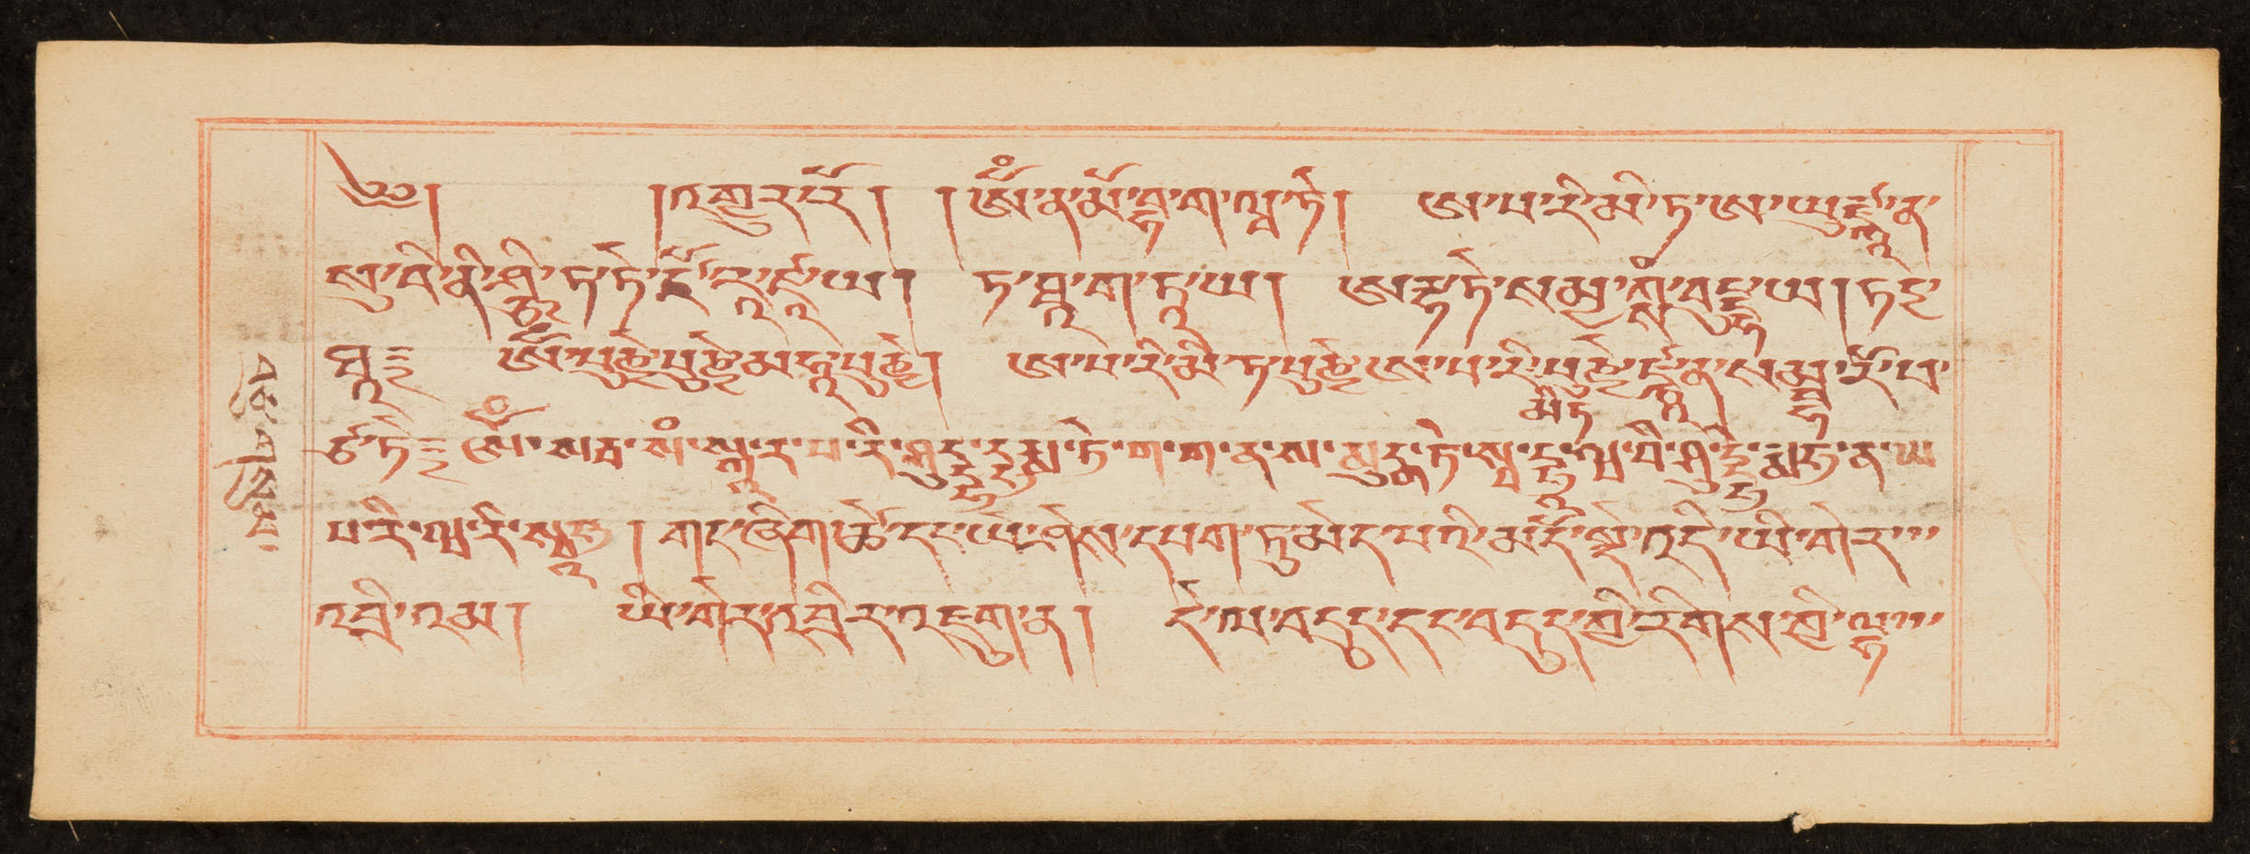 ༄། །འགྱུར་རོ། །ཨོཾ་ན་མོ་བྷ་ག་ཝ་ཏེ། ཨ་པ་རི་མི་ཏ་ཨ་ཡུརྫྙཱ་ན་
སུ་བི་ནི་ཤྩི་ཏ་ཏེ་ཛོ་རཱ་ཛཱ་ཡ། ཏ་ཐཱ་ག་ཏཱ་ཡ། ཨརྷ་ཏེ་སམྱ་ཀྶཾ་བུདྡྷཱ་ཡ། ཏདྱ་
ཐཱ༔ ཨོཾ་པུཎྱེ་པུཎྱེ་མཧཱ་པུཎྱེ། ཨ་པ་རི་མི་ཏ་པུཎྱེ་ཨ་པ་རི་པུཎྱེ་ཛྙཱ་ན་སམྦྷཱ་རོ་པ་
མི་ཏ
ཙི་ཏེ༔ ཨོཾ་སརྦ་སཾ་སྐཱ་ར་པ་རི་ཤུདྡྷ་དྷརྨ་ཏེ་ག་ག་ན་ས་མུདྒ་ཏེ་སྭ་བྷཱ་ཝ་བི་ཤུདྡྷེ་མ་ཧཱ་ན་ཡ
པ་རི་ཝ་རི་སྭཱཧཱ། གང་ཞིག་ཚེ་དང་ཡེ་ཤེས་དཔག་ཏུ་མེད་པའི་མདོ་སྡེ་འདི་ཡི་གེར་
འབྲི་འམ། ཡི་གེར་འབྲིར་འཇུག་ན། དེ་ལ་བདུད་དང་བདུད་ཀྱི་རིགས་ཀྱི་ལྷ་